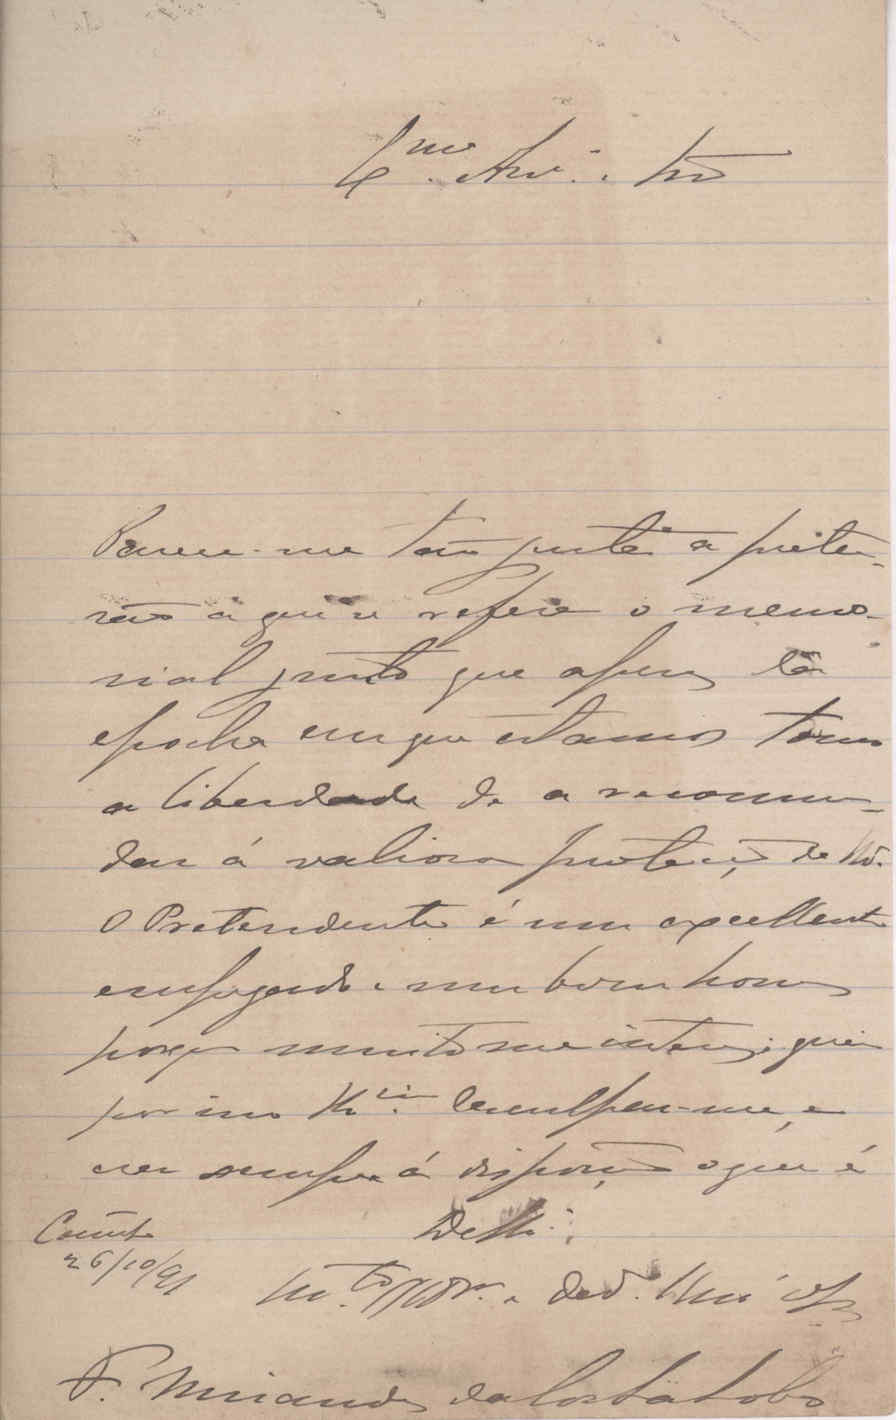 Parece-me tão justa a preten-
são a que se refere o memo-
rial junto que apesar da
epocha em que estamos tomo
a liberdade de a recommen-
dar á valiosa protecção de
O Pretendente é um excellente
empregado e um bom homem
porque muito me interessei; queira
por isso desculpar-me, e
crer sempre á disposição o que é
De
26/10/91
F. Miranda da Costa Lobo